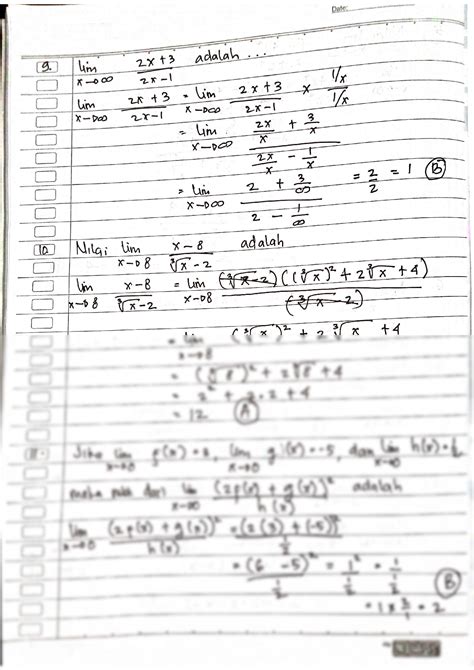 Date:
9. lim x→∞ (2x+3)/(2x-1) adalah ...
lim x→∞ (2x+3)/(2x-1) = lim x→∞ (2x+3)/(2x-1) × (1/x)/(1/x)
= lim x→∞ (2x/x + 3/x)/(2x/x - 1/x)
= lim x→∞ (2 + 3/∞)/(2 - 1/∞) = 2/2 = 1 (B)
10. Nilai lim x→8 (x-8)/(∛x-2) adalah
lim x→8 (x-8)/(∛x-2) = lim x→8 (∛x-2)((∛x)²+2∛x+4)/(∛x-2)
= lim x→8 (∛x)² + 2∛x + 4
= (∛8)² + 2∛8 + 4
= 2² + 2·2 + 4
= 12 (A)
11. Jika lim f(x) = 3, lim g(x) = -5, dan lim h(x) =
maka dari lim (2f(x) + g(x))²/h(x) adalah
lim (2f(x) + g(x))²/h(x) = (2(3) + (-5))²/(1/2)
= (6-5)²/(1/2) = 1²/(1/2) = 1/(1/2) (B)
= 2